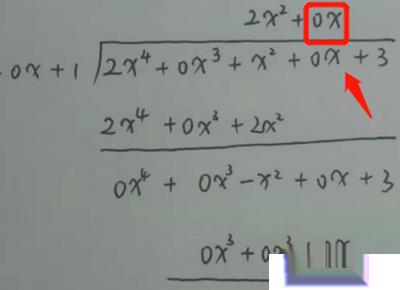 2x² + 0x
0x + 1 ) 2x⁴ + 0x³ + x² + 0x + 3
2x⁴ + 0x³ + 2x²
0x⁴ + 0x³ - x² + 0x + 3
0x³ + 0x²